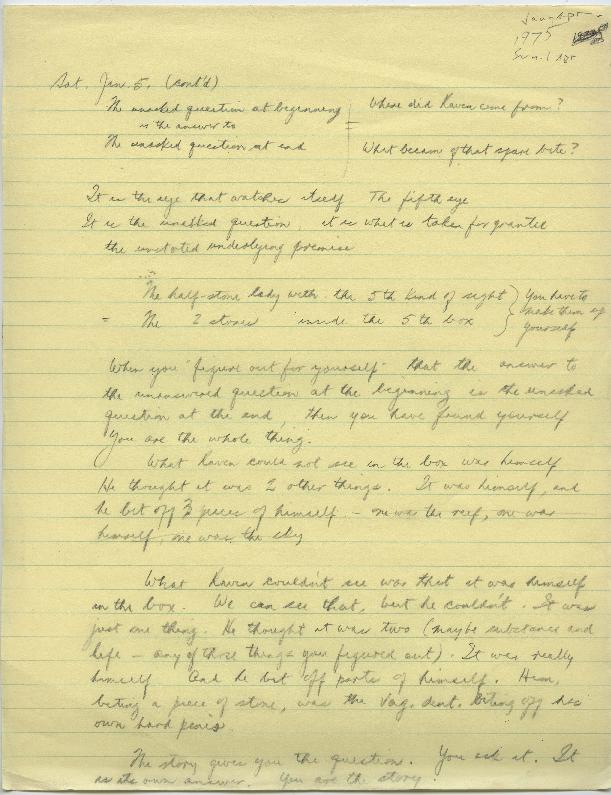 Jan-Apr
1975
Sat. Jan. 5. (cont'd)
The unasked question at beginning | Where did Raven come from?
is the answer to =
The unasked question at end | What became of that spare bite?
It is the eye that watches itself The fifth eye
It is the unasked question, it is what is taken for granted
the unstated underlying premise
The half-stone lady with the 5th kind of sight } You have to
= The 2 stones inside the 5th box } make them up
yourself
When you "figure out for yourself" that the answer to
the unanswered question at the beginning is the unasked
question at the end, then you have found yourself
You are the whole thing.
What Raven could not see in the box was himself
He thought it was 2 other things. It was himself, and
he bit off 3 pieces of himself - one was the reef, one was
himself, one was the sky
What Raven couldn't see was that it was himself
in the box. We can see that, but he couldn't. It was
just one thing. He thought it was two (maybe substance and
life - any of those things you figured out). It was really
himself And he bit off parts of himself. Him,
biting a piece of stone, was the Vag. dent. biting off his
own hard penis.
The story gives you the question. You ask it. It
is its own answer. You are the story.